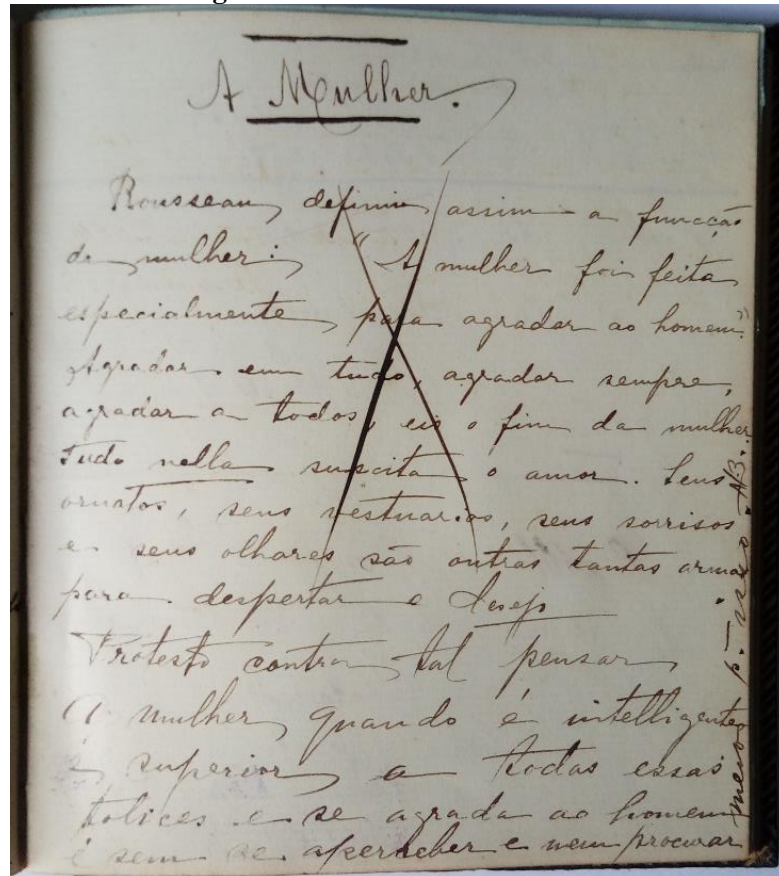 A Mulher.
Rousseau, definiu assim a funcção
da mulher: "A mulher foi feita
especialmente, para agradar ao homem."
Agradar em tudo, agradar sempre,
agradar a todos, eis o fim da mulher.
Tudo nella suscita o amor. Seus
ornatos, seus vestuarios, seus sorrisos
e seus olhares são outras tantas armas
para despertar o desejo
Protesto contra tal pensar
A mulher, quando é intelligente,
é superior a todas essas
tolices e se agrada ao homem
é sem se aperceber e nem procurar